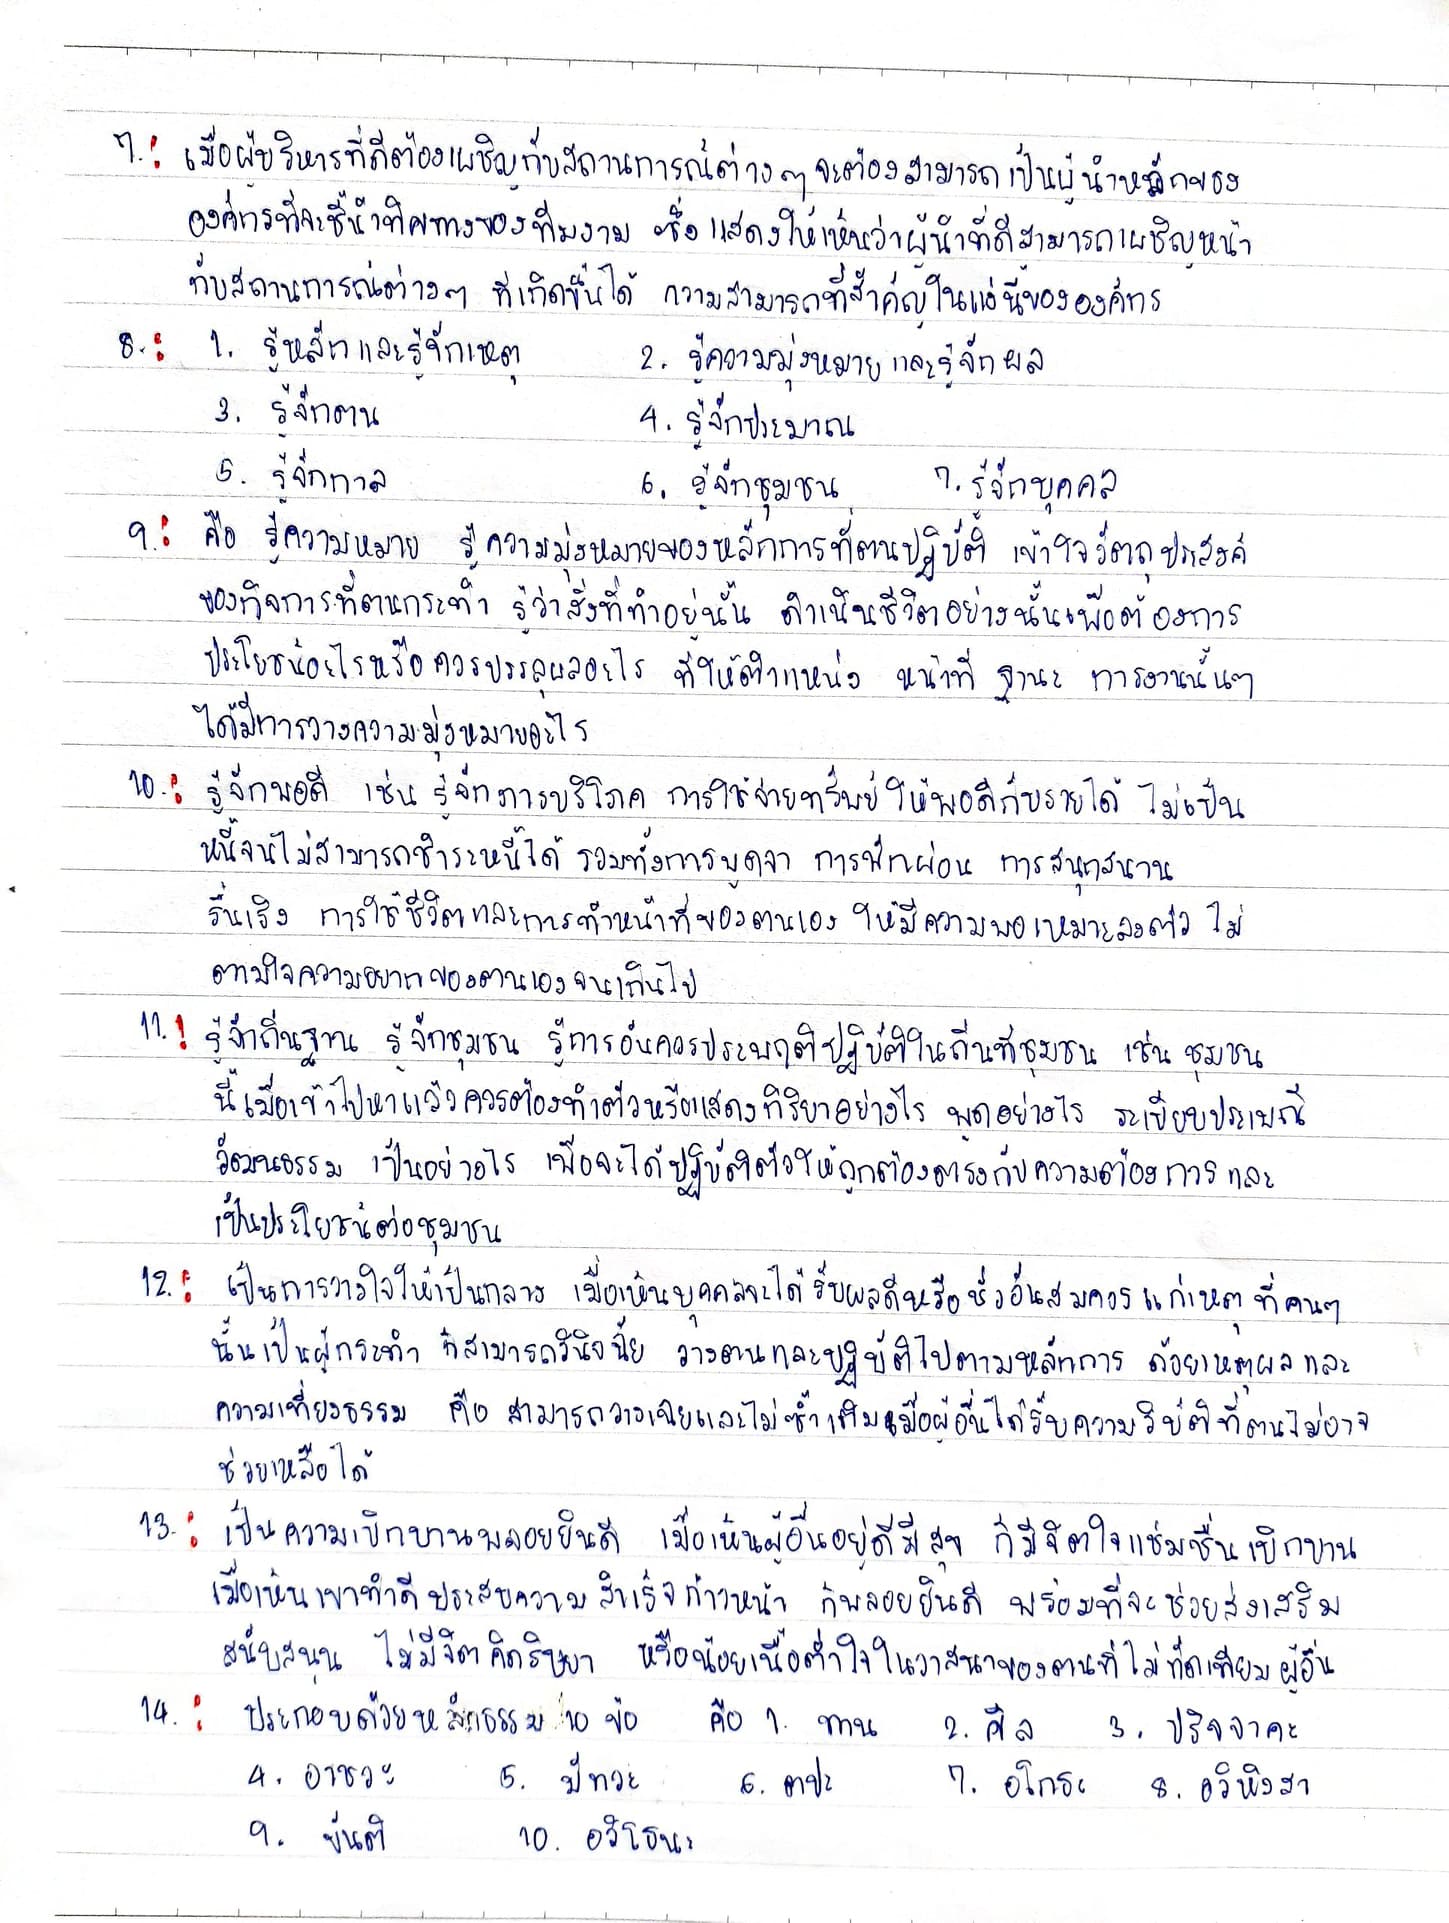 7. : เมื่อผู้บริหารที่ดีต้องเผชิญกับสถานการณ์ต่างๆ จะต้องสามารถเป็นผู้นำหลักของ
องค์กรที่จะชี้นำทิศทางของทีมงาน ซึ่งแสดงให้เห็นว่าผู้นำที่ดีสามารถเผชิญหน้า
กับสถานการณ์ต่างๆ ที่เกิดขึ้นได้ ความสามารถที่สำคัญในแง่นี้ขององค์กร
8. : 1. รู้หลักและรู้จักเหตุ 2. รู้ความมุ่งหมายและรู้จักผล
3. รู้จักตน 4. รู้จักประมาณ
5. รู้จักกาล 6. รู้จักชุมชน 7. รู้จักบุคคล
9. : คือ รู้ความหมาย รู้ความมุ่งหมายของหลักการที่ตนปฏิบัติ เข้าใจวัตถุประสงค์
ของกิจการที่ตนกระทำ รู้ว่าสิ่งที่ทำอยู่นั้น ดำเนินชีวิตอย่างนั้นเพื่อต้องการ
ประโยชน์อะไรหรือควรบรรลุผลอะไร ที่ให้ตำแหน่ง หน้าที่ ฐานะ การงานนั้นๆ
ได้มีการวางความมุ่งหมายอะไร
10. : รู้จักพอดี เช่น รู้จักการบริโภค การใช้จ่ายทรัพย์ ให้พอดีกับรายได้ ไม่เป็น
หนี้จนไม่สามารถชำระหนี้ได้ รวมทั้งการพูดจา การพักผ่อน การสนุกสนาน
รื่นเริง การใช้ชีวิตและการทำหน้าที่ของตนเอง ให้มีความพอเหมาะลงตัว ไม่
ตามใจความอยากของตนเองจนเกินไป
11. : รู้จักถิ่นฐาน รู้จักชุมชน รู้การอันควรประพฤติปฏิบัติในถิ่นที่ชุมชน เช่น ชุมชน
นี้เมื่อเข้าไปหาแล้วควรต้องทำตัวหรือแสดงกิริยาอย่างไร พูดอย่างไร ระเบียบประเพณี
วัฒนธรรม เป็นอย่างไร เพื่อจะได้ปฏิบัติตัวให้ถูกต้องตรงกับความต้องการและ
เป็นประโยชน์ต่อชุมชน
12. : เป็นการวางใจให้เป็นกลาง เมื่อเห็นบุคคลจะได้รับผลดีหรือชั่วอันสมควรแก่เหตุที่คนๆ
นั้นเป็นผู้กระทำ ก็สามารถวินิจฉัย วางตนและปฏิบัติไปตามหลักการ ด้วยเหตุผลและ
ความเที่ยงธรรม คือ สามารถวางเฉยและไม่ซ้ำเติมเมื่อผู้อื่นได้รับความวิบัติที่ตนไม่อาจ
ช่วยเหลือได้
13. : เป็นความเบิกบานพลอยยินดี เมื่อเห็นผู้อื่นอยู่ดีมีสุข ก็มีจิตใจแช่มชื่นเบิกบาน
เมื่อเห็นเขาทำดีประสบความสำเร็จก้าวหน้า ก็พลอยยินดี พร้อมที่จะช่วยส่งเสริม
สนับสนุน ไม่มีจิตคิดริษยา หรือน้อยเนื้อต่ำใจในวาสนาของตนที่ไม่ทัดเทียมผู้อื่น
14. : ประกอบด้วยหลักธรรม 10 ข้อ คือ 1. ทาน 2. ศีล 3. ปริจจาคะ
4. อาชวะ 5. มัทวะ 6. ตปะ 7. อโกธะ 8. อวิหิงสา
9. ขันติ 10. อวิโรธนะ